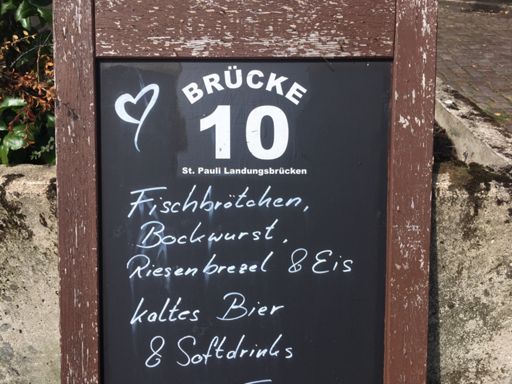 BRÜCKE
10
St. Pauli Landungsbrücken
Fischbrötchen,
Bockwurst,
Riesenbrezel & Eis
kaltes Bier
& Softdrinks